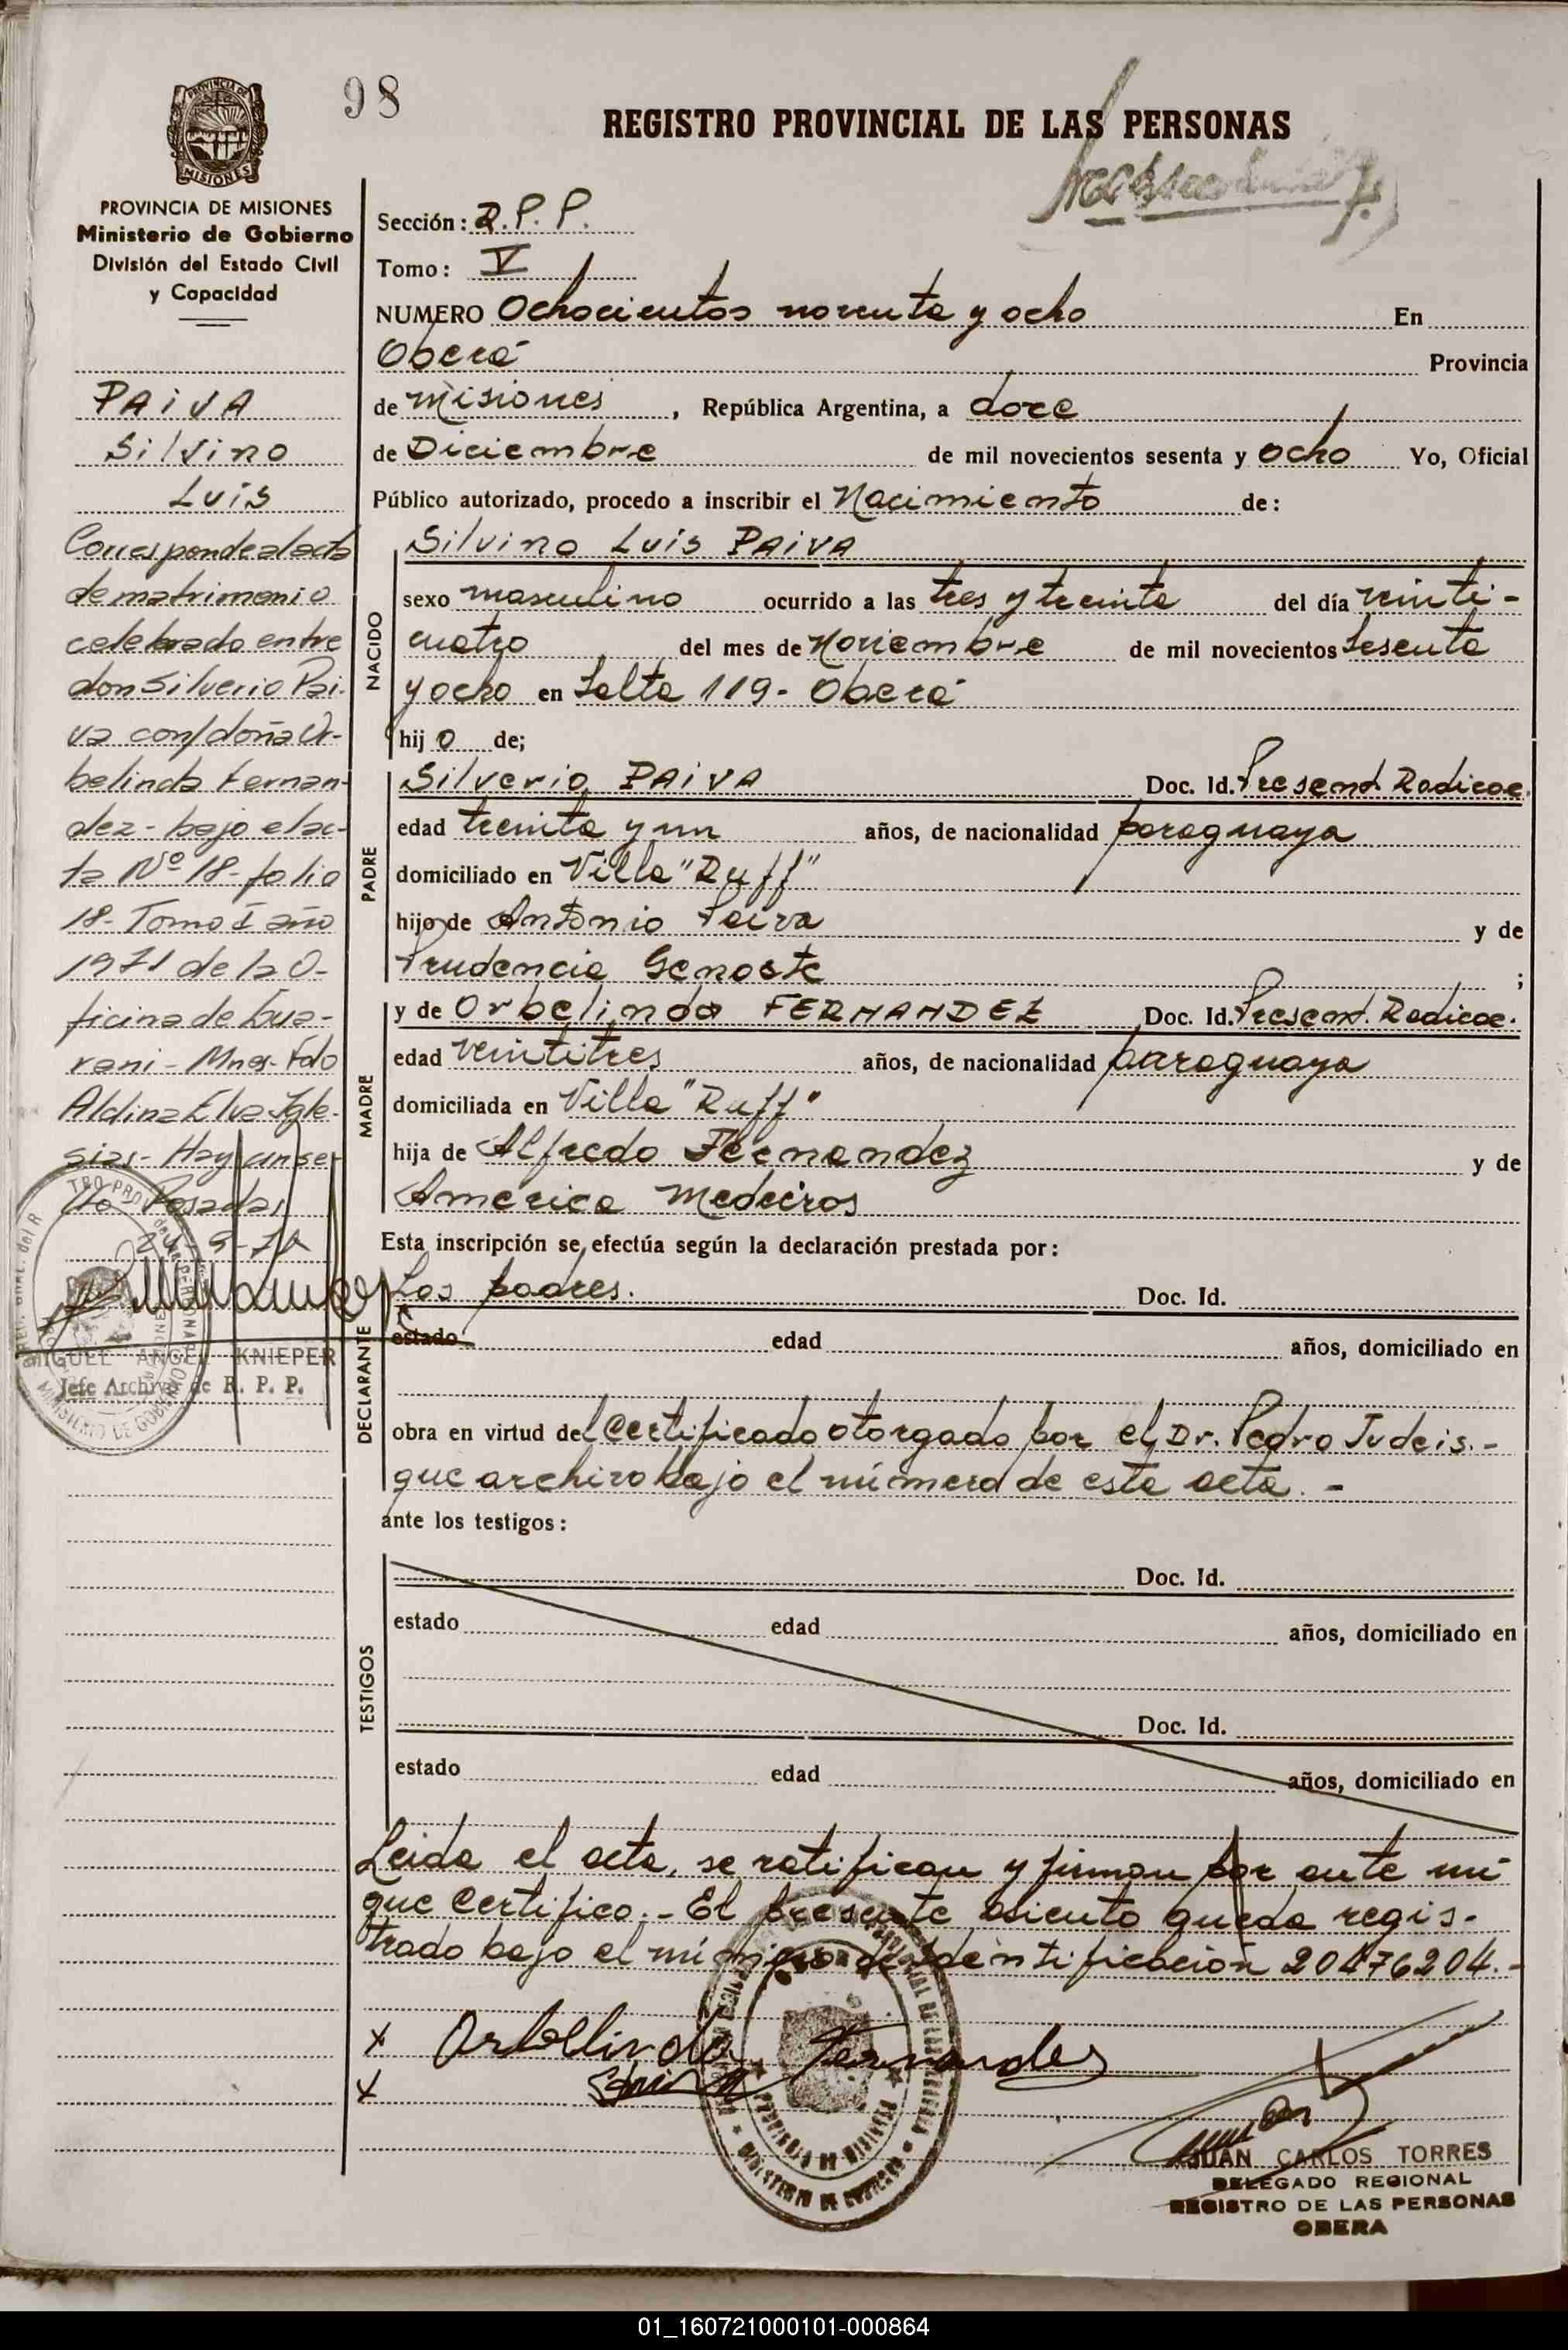 98
REGISTRO PROVINCIAL DE LAS PERSONAS
PROVINCIA DE MISIONES
Ministerio de Gobierno
División del Estado Civil
y Capacidad
PAIVA
Silvino
Luis
Corresponde al acta
de matrimonio
celebrado entre
don Silverio Pai-
va con doña Or-
belinda Fernan-
dez - bajo el ac-
ta Nº 18 - folio
18 - Tomo I año
1971 de la O-
ficina de Gua-
rani - Mnes. Fdo
Aldina Elva Igle-
sias - Hay un se-
llo Posadas
MIGUEL ANGEL KNIEPER
Jefe Archivo de R. P. P.
Sección: R.P.P.
Tomo: V
NUMERO Ochocientos noventa y ocho En
Oberá Provincia
de Misiones, República Argentina, a doce
de Diciembre de mil novecientos sesenta y ocho Yo, Oficial
Público autorizado, procedo a inscribir el Nacimiento de:
NACIDO
Silvino Luis PAIVA
sexo masculino ocurrido a las tres y treinta del día veinti-
cuatro del mes de Noviembre de mil novecientos sesenta
y ocho en Salta 119 - Oberá
hij o de;
PADRE
Silverio PAIVA Doc. Id. Present. Radicac.
edad treinta y un años, de nacionalidad paraguaya
domiciliado en Villa "Ruff"
hijo de Antonio Paiva y de
Prudencia Genoste ;
MADRE
y de Orbelinda FERNANDEZ Doc. Id. Present. Radicac.
edad veintitres años, de nacionalidad paraguaya
domiciliada en Villa "Ruff"
hija de Alfredo Fernandez y de
America Medeiros
Esta inscripción se efectúa según la declaración prestada por:
DECLARANTE
Los padres. Doc. Id.
estado edad años, domiciliado en
obra en virtud del Certificado otorgado por el Dr. Pedro Judeis.-
que archivo bajo el número de esta acta.-
ante los testigos:
TESTIGOS
Doc. Id.
estado edad años, domiciliado en
Doc. Id.
estado edad años, domiciliado en
Leida el acta, se ratifican y firman por ante mi
que certifico.- El presente asiento queda regis-
trado bajo el número de Identificación 20476204.-
x Orbelinda Fernandes
x
JUAN CARLOS TORRES
DELEGADO REGIONAL
REGISTRO DE LAS PERSONAS
OBERA
01_160721000101-000864